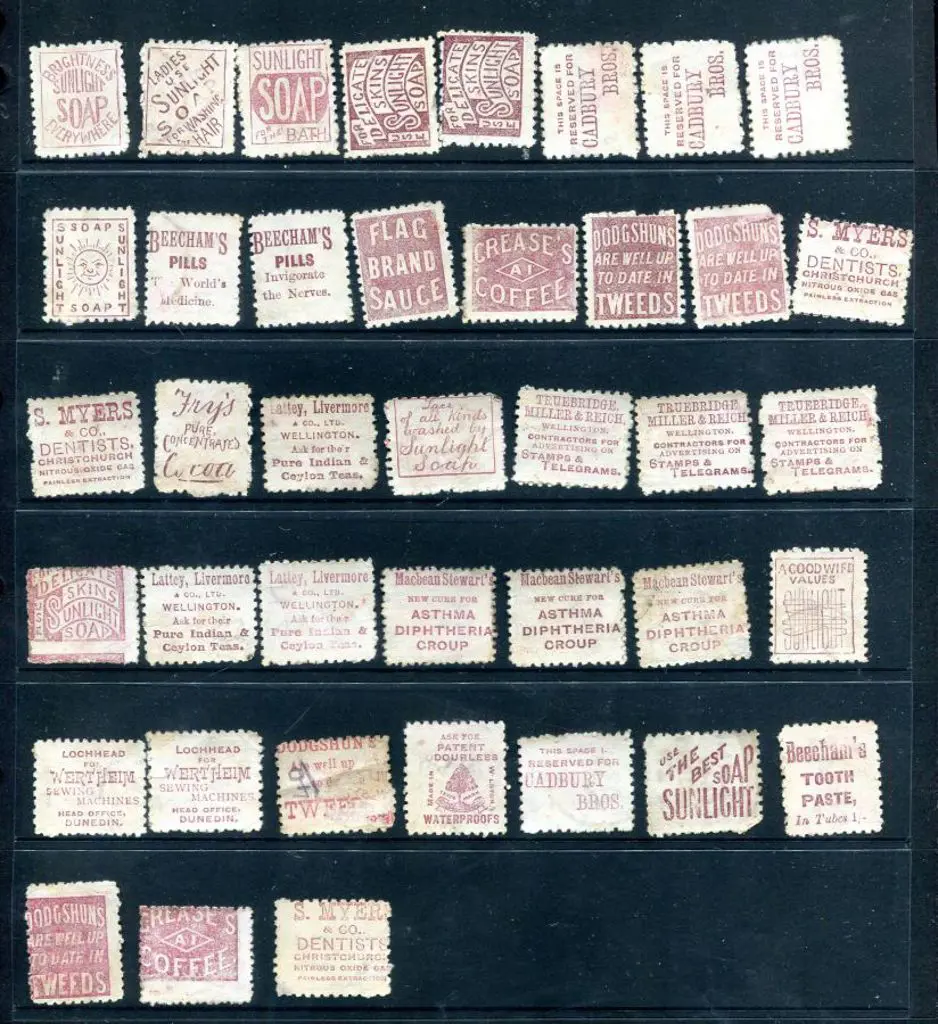 BRIGHTNESS
SUNLIGHT
SOAP
EVERYWHERE
LADIES
USE
SUNLIGHT
SOAP
FOR WASHING
HAIR
SUNLIGHT
SOAP
FOR THE
BATH
FOR
DELICATE
SKINS
SUNLIGHT
SOAP
USE
FOR
DELICATE
SKINS
SUNLIGHT
SOAP
USE
THIS SPACE IS
RESERVED FOR
CADBURY
BROS.
THIS SPACE IS
RESERVED FOR
CADBURY
BROS.
THIS SPACE IS
RESERVED FOR
CADBURY
BROS.
SSOAPS
SUNLIGHT
SUNLIGHT
TSOAPT
BEECHAM'S
PILLS
World's
Medicine.
BEECHAM'S
PILLS
Invigorate
the Nerves.
FLAG
BRAND
SAUCE
CREASE'S
A1
COFFEE
DODGSHUNS
ARE WELL UP
TO DATE IN
TWEEDS
DODGSHUNS
ARE WELL UP
TO DATE IN
TWEEDS
S. MYERS
& CO.,
DENTISTS,
CHRISTCHURCH
NITROUS OXIDE GAS
PAINLESS EXTRACTION
S. MYERS
& CO.,
DENTISTS,
CHRISTCHURCH
NITROUS OXIDE GAS
PAINLESS EXTRACTION
Fry's
PURE
CONCENTRATED
Cocoa
Lattey, Livermore
& CO., LTD.
WELLINGTON.
Ask for their
Pure Indian &
Ceylon Teas.
Lace
of all kinds
washed by
Sunlight
Soap
TRUEBRIDGE,
MILLER & REICH,
WELLINGTON,
CONTRACTORS FOR
ADVERTISING ON
STAMPS &
TELEGRAMS.
TRUEBRIDGE,
MILLER & REICH,
WELLINGTON,
CONTRACTORS FOR
ADVERTISING ON
STAMPS &
TELEGRAMS.
TRUEBRIDGE,
MILLER & REICH,
WELLINGTON,
CONTRACTORS FOR
ADVERTISING ON
STAMPS &
TELEGRAMS.
DELICATE
SKINS
SUNLIGHT
SOAP
Lattey, Livermore
& CO., LTD.
WELLINGTON.
Ask for their
Pure Indian &
Ceylon Teas.
Lattey, Livermore
& CO., LTD.
WELLINGTON.
Ask for their
Pure Indian &
Ceylon Teas.
Macbean Stewart's
NEW CURE FOR
ASTHMA
DIPHTHERIA
CROUP
Macbean Stewart's
NEW CURE FOR
ASTHMA
DIPHTHERIA
CROUP
Macbean Stewart's
NEW CURE FOR
ASTHMA
DIPHTHERIA
CROUP
A GOOD WIFE
VALUES
SUNLIGHT
LOCHHEAD
FOR
WERTHEIM
SEWING
MACHINES
HEAD OFFICE,
DUNEDIN.
LOCHHEAD
FOR
WERTHEIM
SEWING
MACHINES
HEAD OFFICE,
DUNEDIN.
DODGSHUNS
well up
TWEEDS
ASK FOR
PATENT
ODOURLESS
MADE IN
WATERPROOFS
THIS SPACE IS
RESERVED FOR
CADBURY
BROS.
USE
THE
BEST
SOAP
SUNLIGHT
Beecham's
TOOTH
PASTE,
In Tubes 1/-
DODGSHUNS
ARE WELL UP
TO DATE IN
TWEEDS
CREASE'S
A1
COFFEE
S. MYERS
& CO.,
DENTISTS
CHRISTCHURCH
NITROUS OXIDE GAS
PAINLESS EXTRACTION